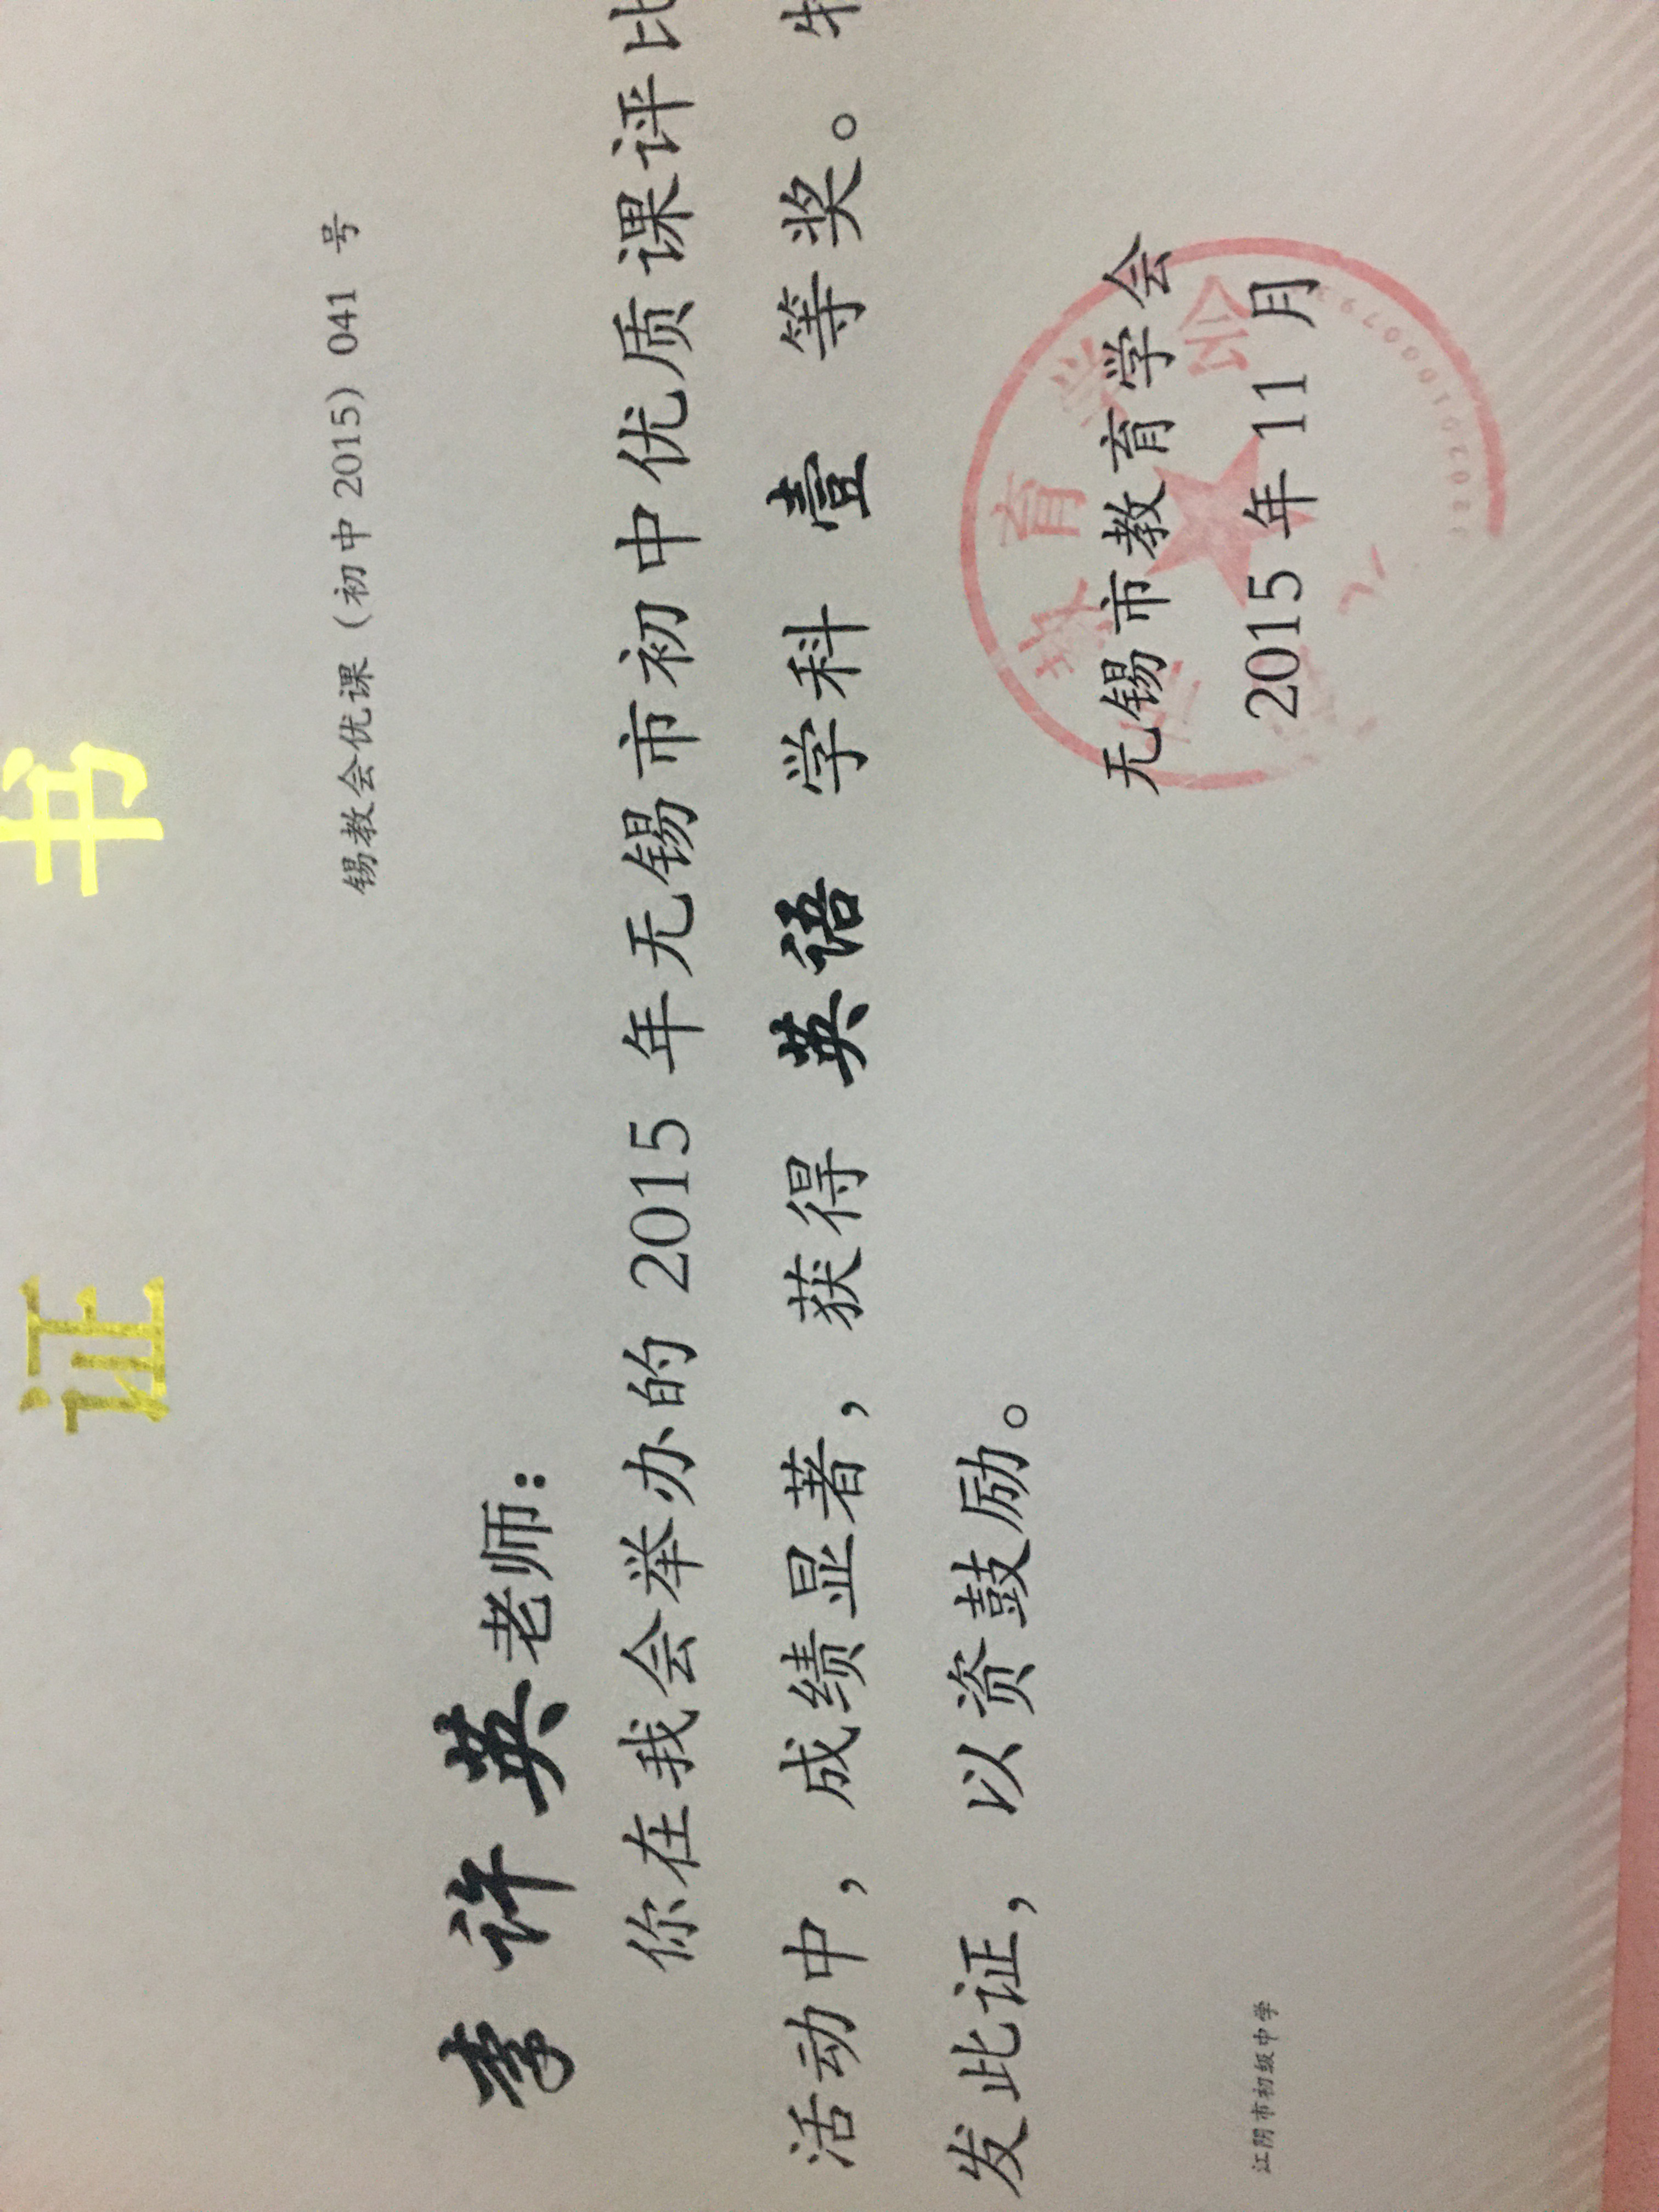 证 书
锡教会优课（初中 2015）041 号
李许英老师：
你在我会举办的 2015 年无锡市初中优质课评比
活动中，成绩显著，获得 英语 学科 壹 等奖。特
发此证，以资鼓励。
无锡市教育学会
2015 年 11 月
江阴市初级中学